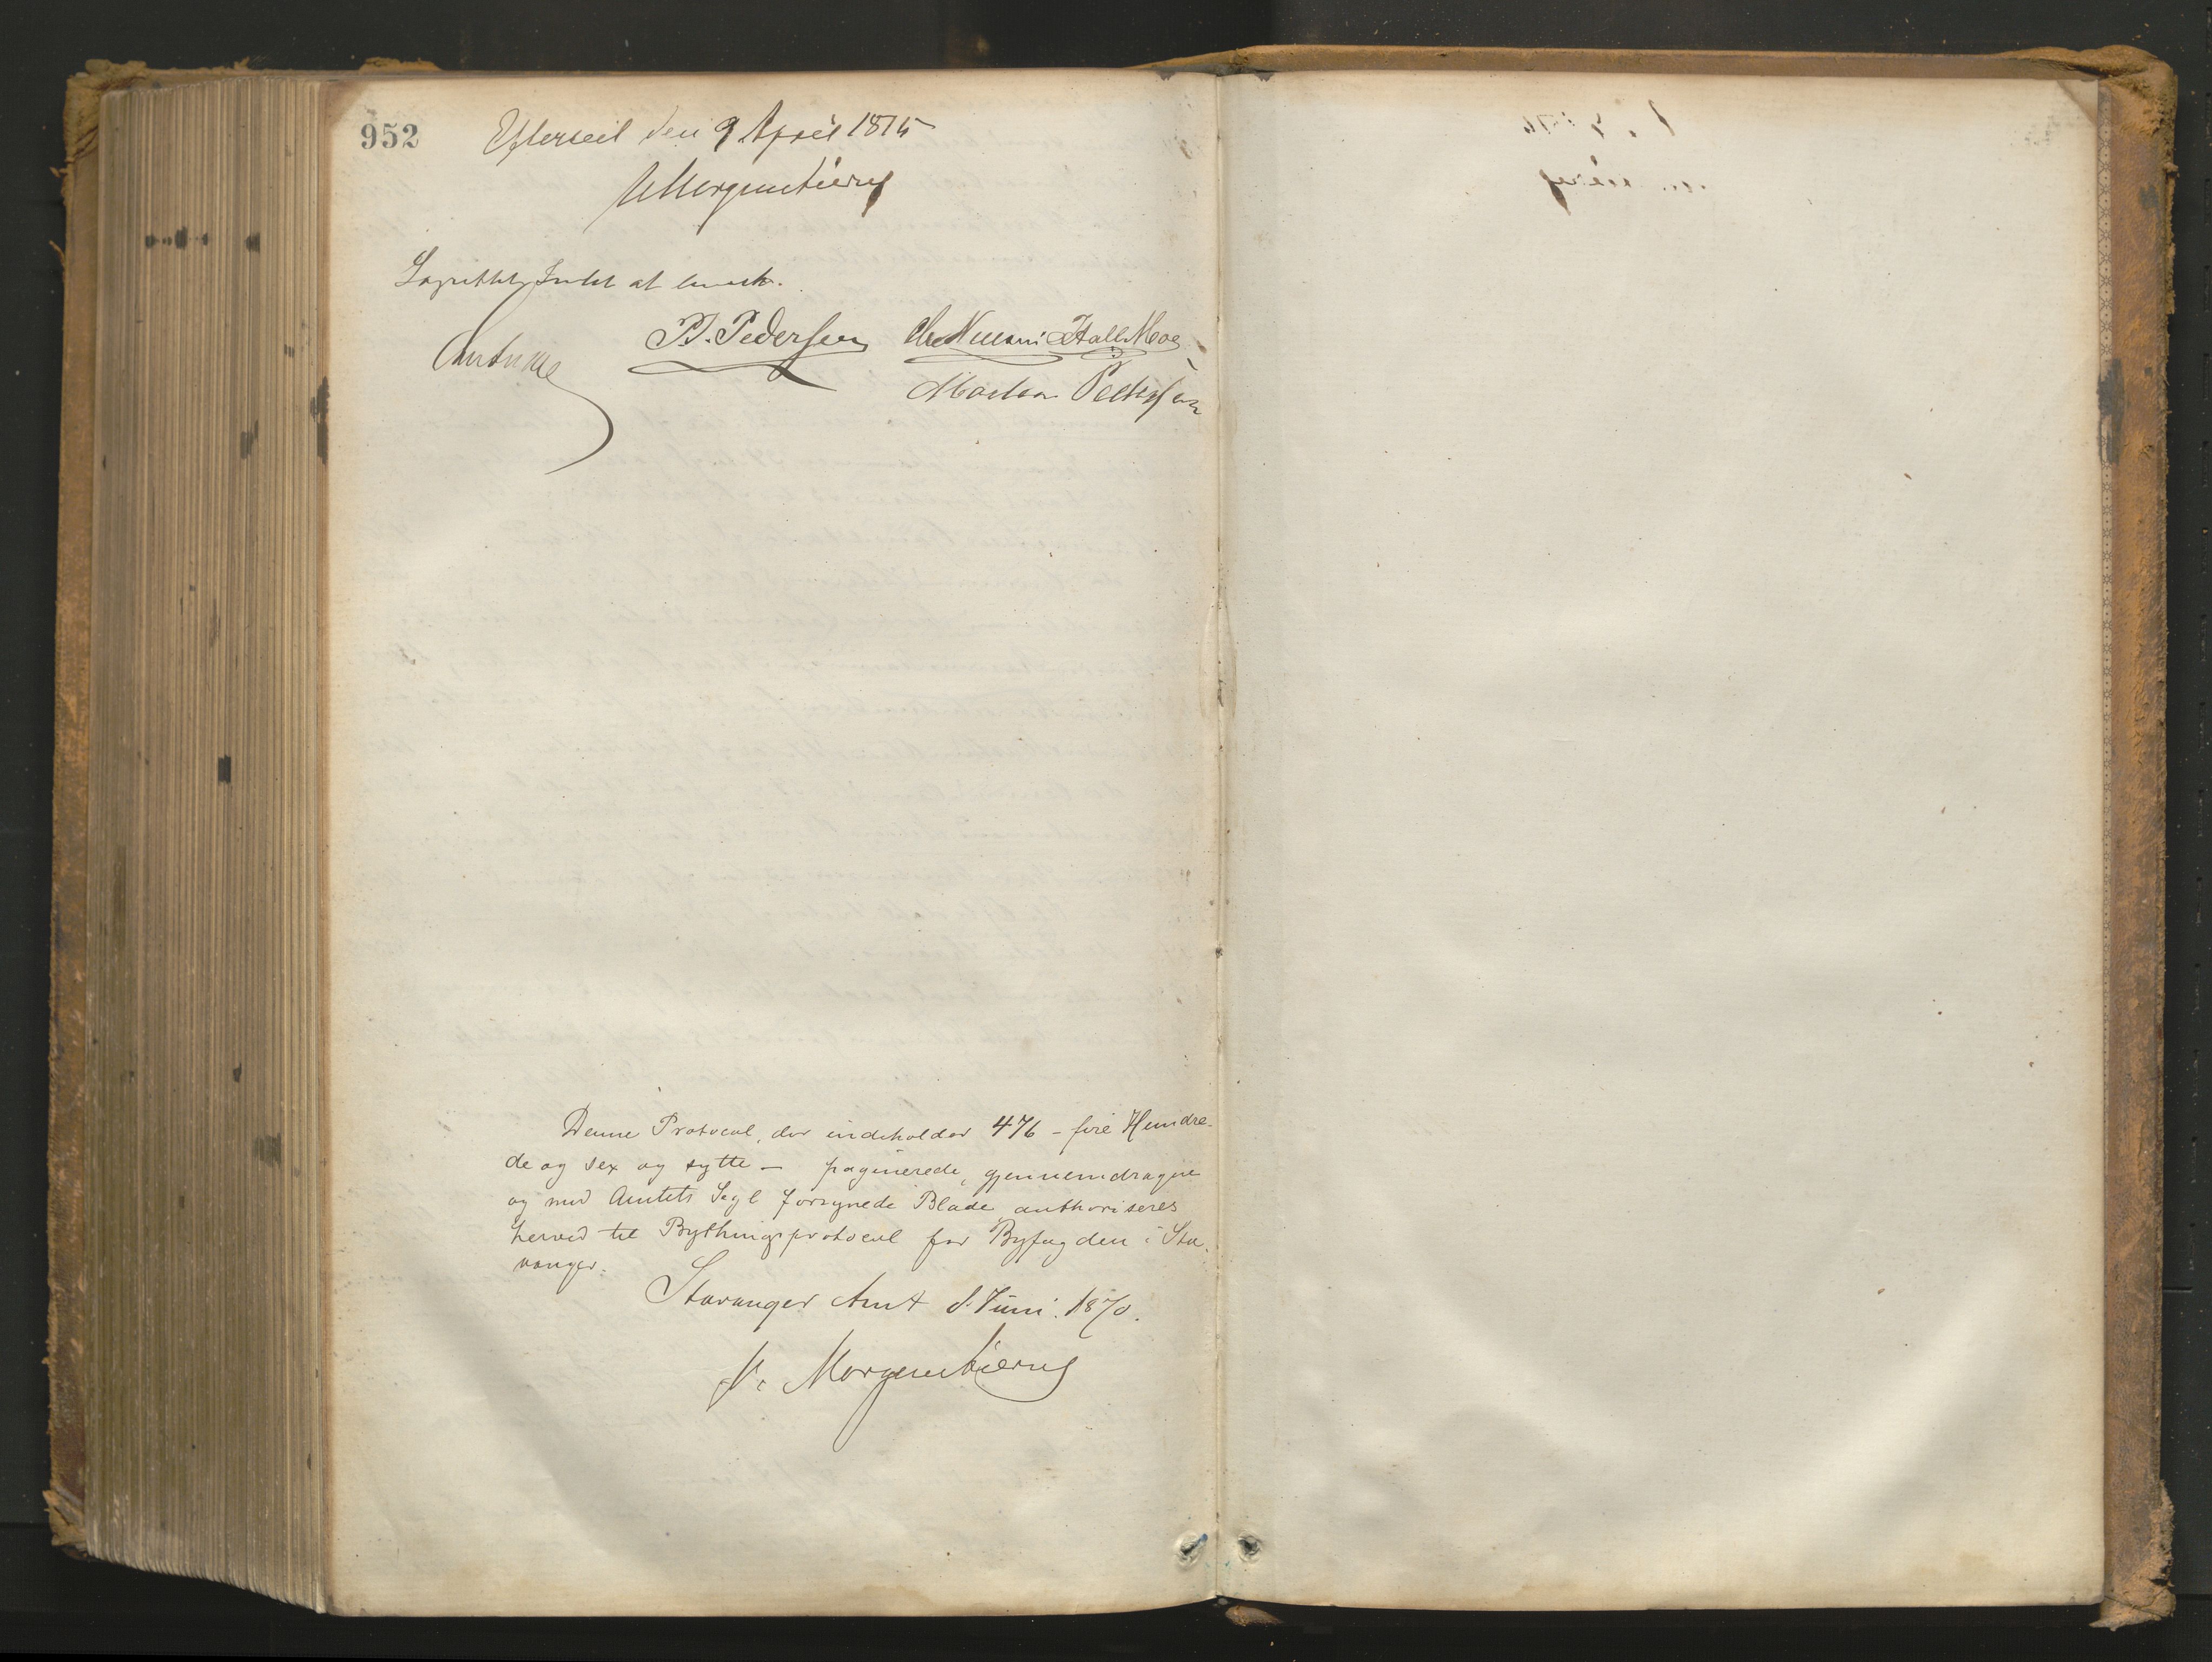 952
Efterseet den 9 April 1875
Morgenstierne
Lagrettet Intet at bemærke.
P. Pedersen
Halle Moe
Morten Pedersen
Denne Protocol, der indeholder 476 - fire Hundre-
de og sex og sytti - paginerede, gjennemdragne
og med Amtets Segl forsynede Blade, authoriseres
herved til Bythingsprotocol for Byfogden i Sta-
vanger.
Stavanger Amt d. Juni 1870.
V. Morgenstierne